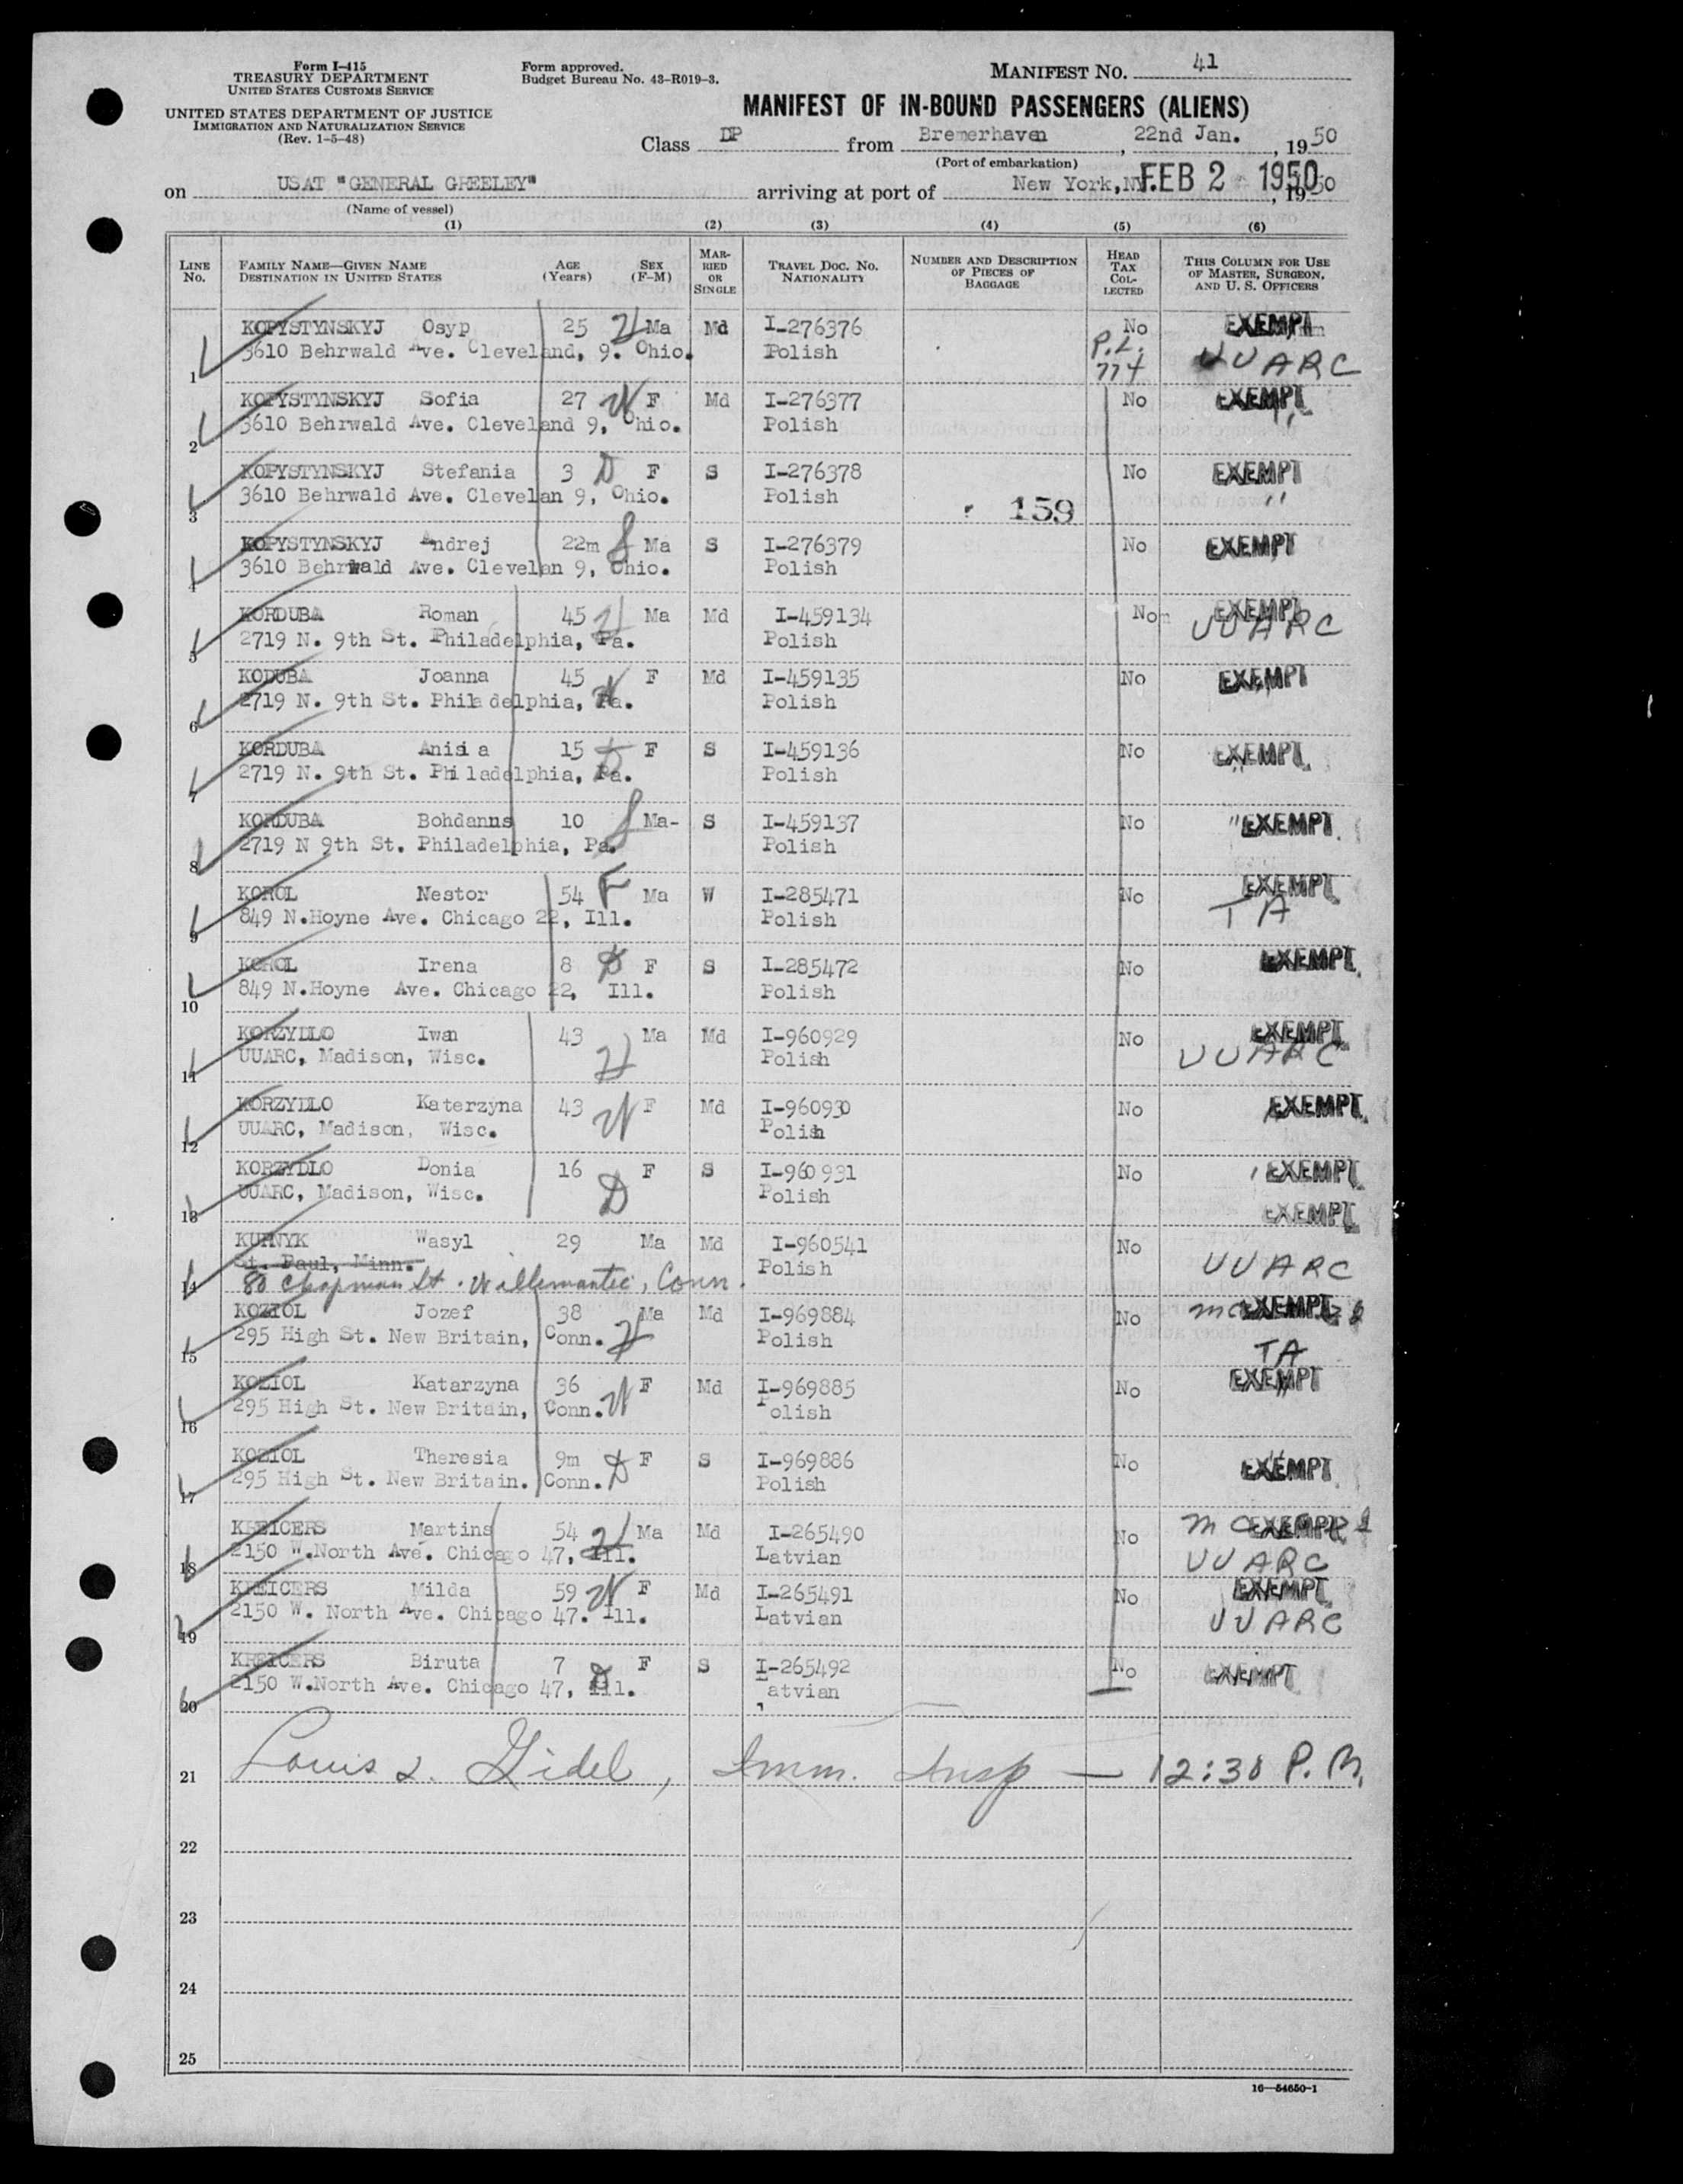 Form I-415
TREASURY DEPARTMENT
UNITED STATES CUSTOMS SERVICE
UNITED STATES DEPARTMENT OF JUSTICE
IMMIGRATION AND NATURALIZATION SERVICE
(Rev. 1-5-48)
Form approved.
Budget Bureau No. 43-R019-3.
MANIFEST NO. 41
MANIFEST OF IN-BOUND PASSENGERS (ALIENS)
Class DP from Bremerhaven, 22nd Jan., 1950
(Port of embarkation)
on USAT "GENERAL GREELEY" arriving at port of New York, NY. FEB 2 1950, 1950
(Name of vessel)
(1) (2) (3) (4) (5) (6)
LINE No. FAMILY NAME—GIVEN NAME DESTINATION IN UNITED STATES AGE (Years) SEX (F-M) MARRIED OR SINGLE TRAVEL DOC. NO. NATIONALITY NUMBER AND DESCRIPTION OF PIECES OF BAGGAGE HEAD TAX COLLECTED THIS COLUMN FOR USE OF MASTER, SURGEON, AND U. S. OFFICERS
KOPYSTYNSKYJ Osyp 25 H Ma Md I-276376 No EXEMPT
1 3610 Behrwald Ave. Cleveland, 9. Ohio. Polish P.L. 774 UUARC
KOPYSTYNSKYJ Sofia 27 W F Md I-276377 No EXEMPT
2 3610 Behrwald Ave. Cleveland 9, Ohio. Polish "
KOPYSTYNSKYJ Stefania 3 D F S I-276378 No EXEMPT
3 3610 Behrwald Ave. Clevelan 9, Ohio. Polish 159 "
KOPYSTYNSKYJ Andrej 22m S Ma S I-276379 No EXEMPT
4 3610 Behrwald Ave. Clevelan 9, Ohio. Polish
KORDUBA Roman 45 H Ma Md I-459134 No EXEMPT
5 2719 N. 9th St. Philadelphia, Pa. Polish UUARC
KODUBA Joanna 45 W F Md I-459135 No EXEMPT
6 2719 N. 9th St. Philadelphia, Pa. Polish
KORDUBA Anisia 15 D F S I-459136 No EXEMPT
7 2719 N. 9th St. Philadelphia, Pa. Polish "
KORDUBA Bohdanns 10 S Ma- S I-459137 No "EXEMPT
8 2719 N 9th St. Philadelphia, Pa. Polish
KOROL Nestor 54 F Ma W I-285471 No EXEMPT
9 849 N.Hoyne Ave. Chicago 22, Ill. Polish TA
KOROL Irena 8 D F S I-285472 No EXEMPT
10 849 N.Hoyne Ave. Chicago 22, Ill. Polish
KORZYDLO Iwan 43 H Ma Md I-960929 No EXEMPT
11 UUARC, Madison, Wisc. Polish UUARC
KORZYDLO Katerzyna 43 W F Md I-960930 No EXEMPT
12 UUARC, Madison, Wisc. Polish
KORZYDLO Donia 16 D F S I-960931 No EXEMPT
13 UUARC, Madison, Wisc. Polish
EXEMPT
Wasyl 29 Ma Md I-960541 No
St. Paul, Minn. Polish UUARC
14 80 Chapman St. Willimantic, Conn.
KOZIOL Jozef 38 H Ma Md I-969884 No EXEMPT
15 295 High St. New Britain, Conn. Polish TA
KOZIOL Katarzyna 36 W F Md I-969885 No EXEMPT
16 295 High St. New Britain, Conn. Polish
KOZIOL Theresia 9m D F S I-969886 No EXEMPT
17 295 High St. New Britain. Conn. Polish
KREICERS Martins 54 H Ma Md I-265490 No EXEMPT
18 2150 W.North Ave. Chicago 47, Ill. Latvian UUARC
KREICERS Milda 59 W F Md I-265491 No EXEMPT
19 2150 W. North Ave. Chicago 47. Ill. Latvian UUARC
KREICERS Biruta 7 D F S I-265492 No EXEMPT
20 2150 W.North Ave. Chicago 47, Ill. Latvian
21 Louis L. Gidel, Imm. Insp — 12:30 P.M.
22
23
24
25
16—54650-1